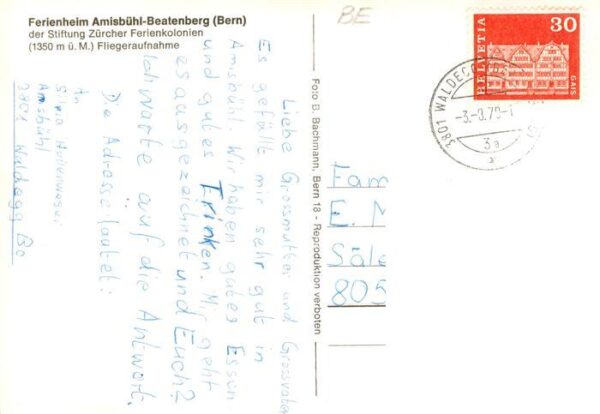 Ferienheim Amisbühl-Beatenberg (Bern)
der Stiftung Zürcher Ferienkolonien
(1350 m ü. M.) Fliegeraufnahme
BE
HELVETIA
30
GAIS
3801 WALDEGG
-3.-8.79-1
3a
Foto B. Bachmann, Bern 13 - Reproduktion verboten
Liebe Grossmutter und Grossvater
Es gefällt mir sehr gut in
Amsbühl. Wir haben gutes Essen
und gutes Trinken. Mir geht
es ausgezeichnet und Euch?
Ich warte auf die Antwort.
Die Adresse lautet:
An
Silvia
Amsbühl
3801 Waldegg Be
Fam
E. M
Säle
805